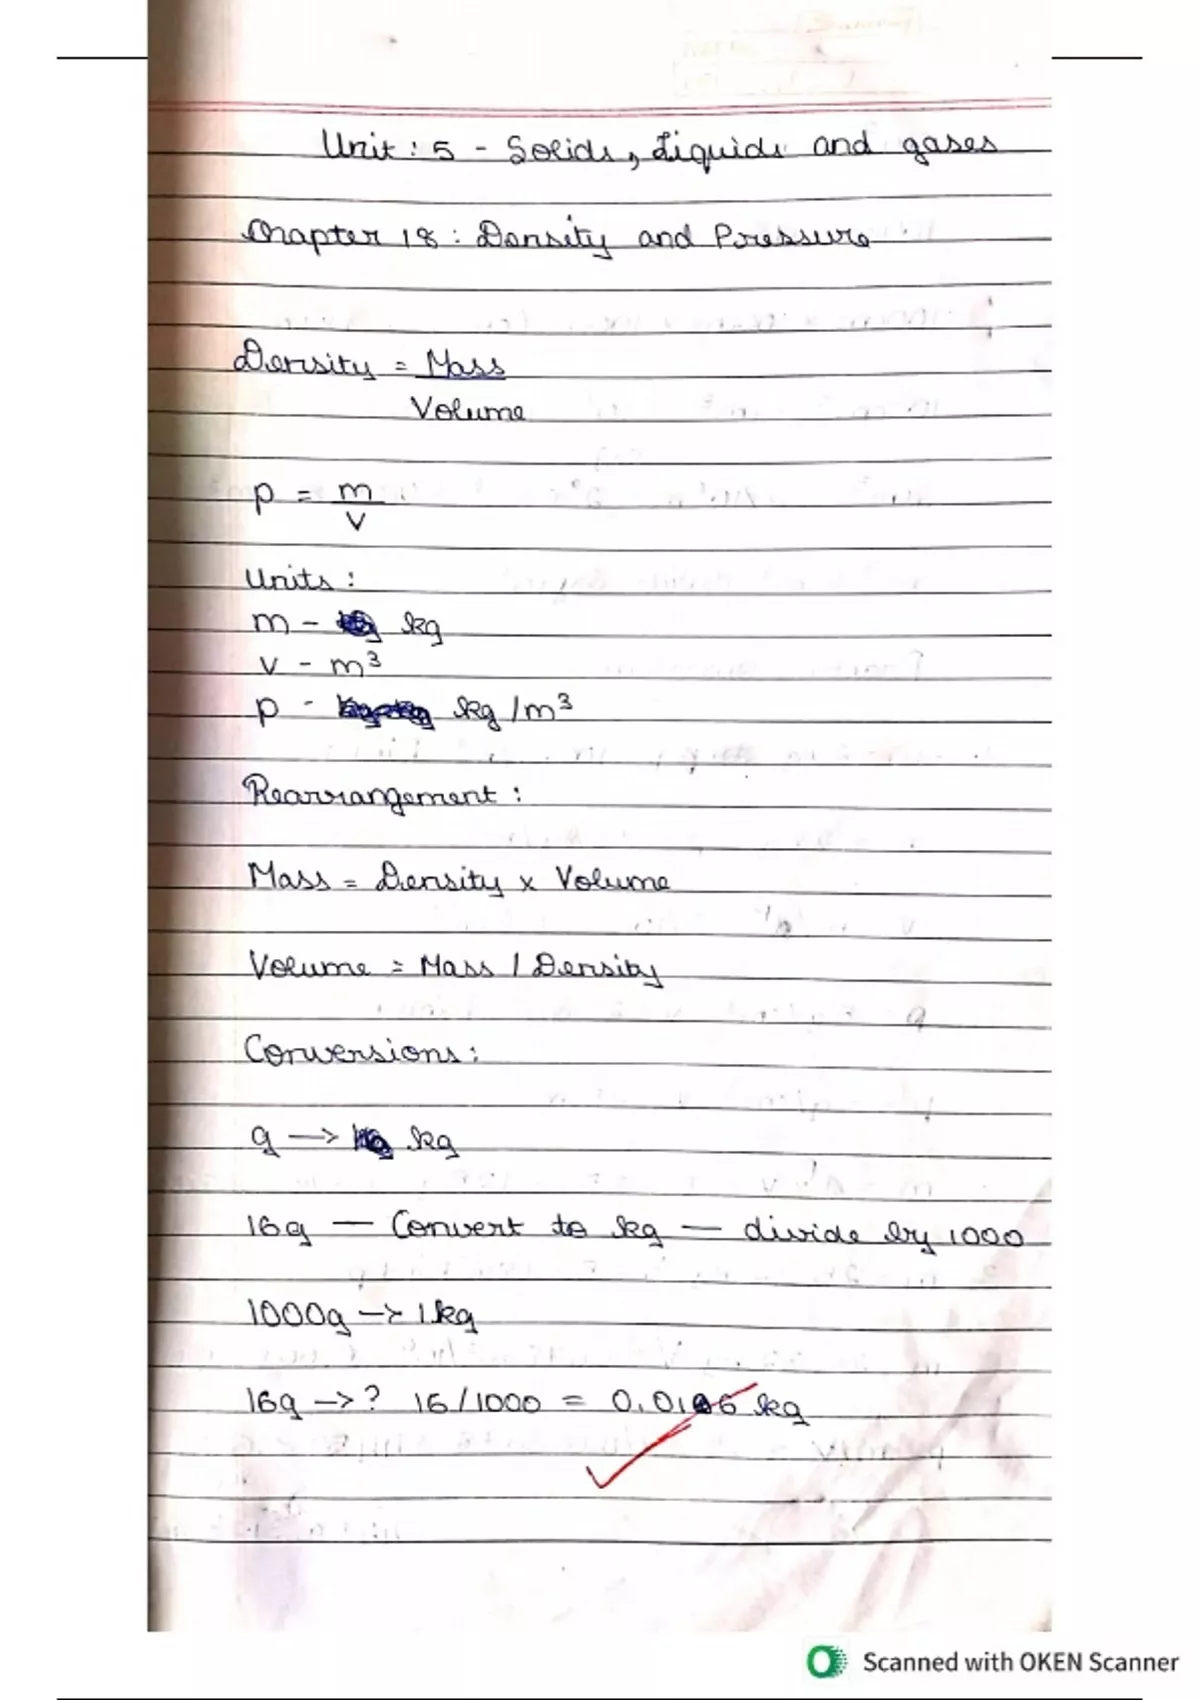 Unit : 5 - Solids, Liquids and gases
Chapter 18 : Density and Pressure
Density = Mass
Volume
p = m
v
Units :
m - kg
v - m³
p - kg/m³
Rearrangement :
Mass = Density x Volume
Volume = Mass / Density
Conversions :
g → kg
16g — Convert to kg — divide by 1000
1000g → 1kg
16g → ? 16/1000 = 0.016 kg
Scanned with OKEN Scanner